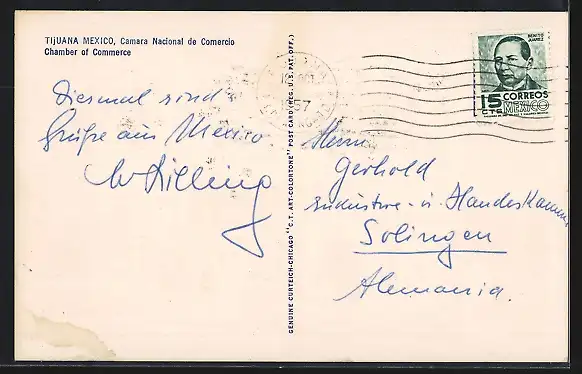 TIJUANA MEXICO, Camara Nacional de Comercio
Chamber of Commerce
Diesmal sind
Grüße aus Mexico
GENUINE CURTEICH-CHICAGO "C.T. ART-COLORTONE" POST CARD (REG. U.S. PAT. OFF.)
57
BENITO
JUAREZ
15 CORREOS
CTS MEXICO
Herrn
Gerhold
Industrie- u. Handelskammer
Solingen
Alemania.